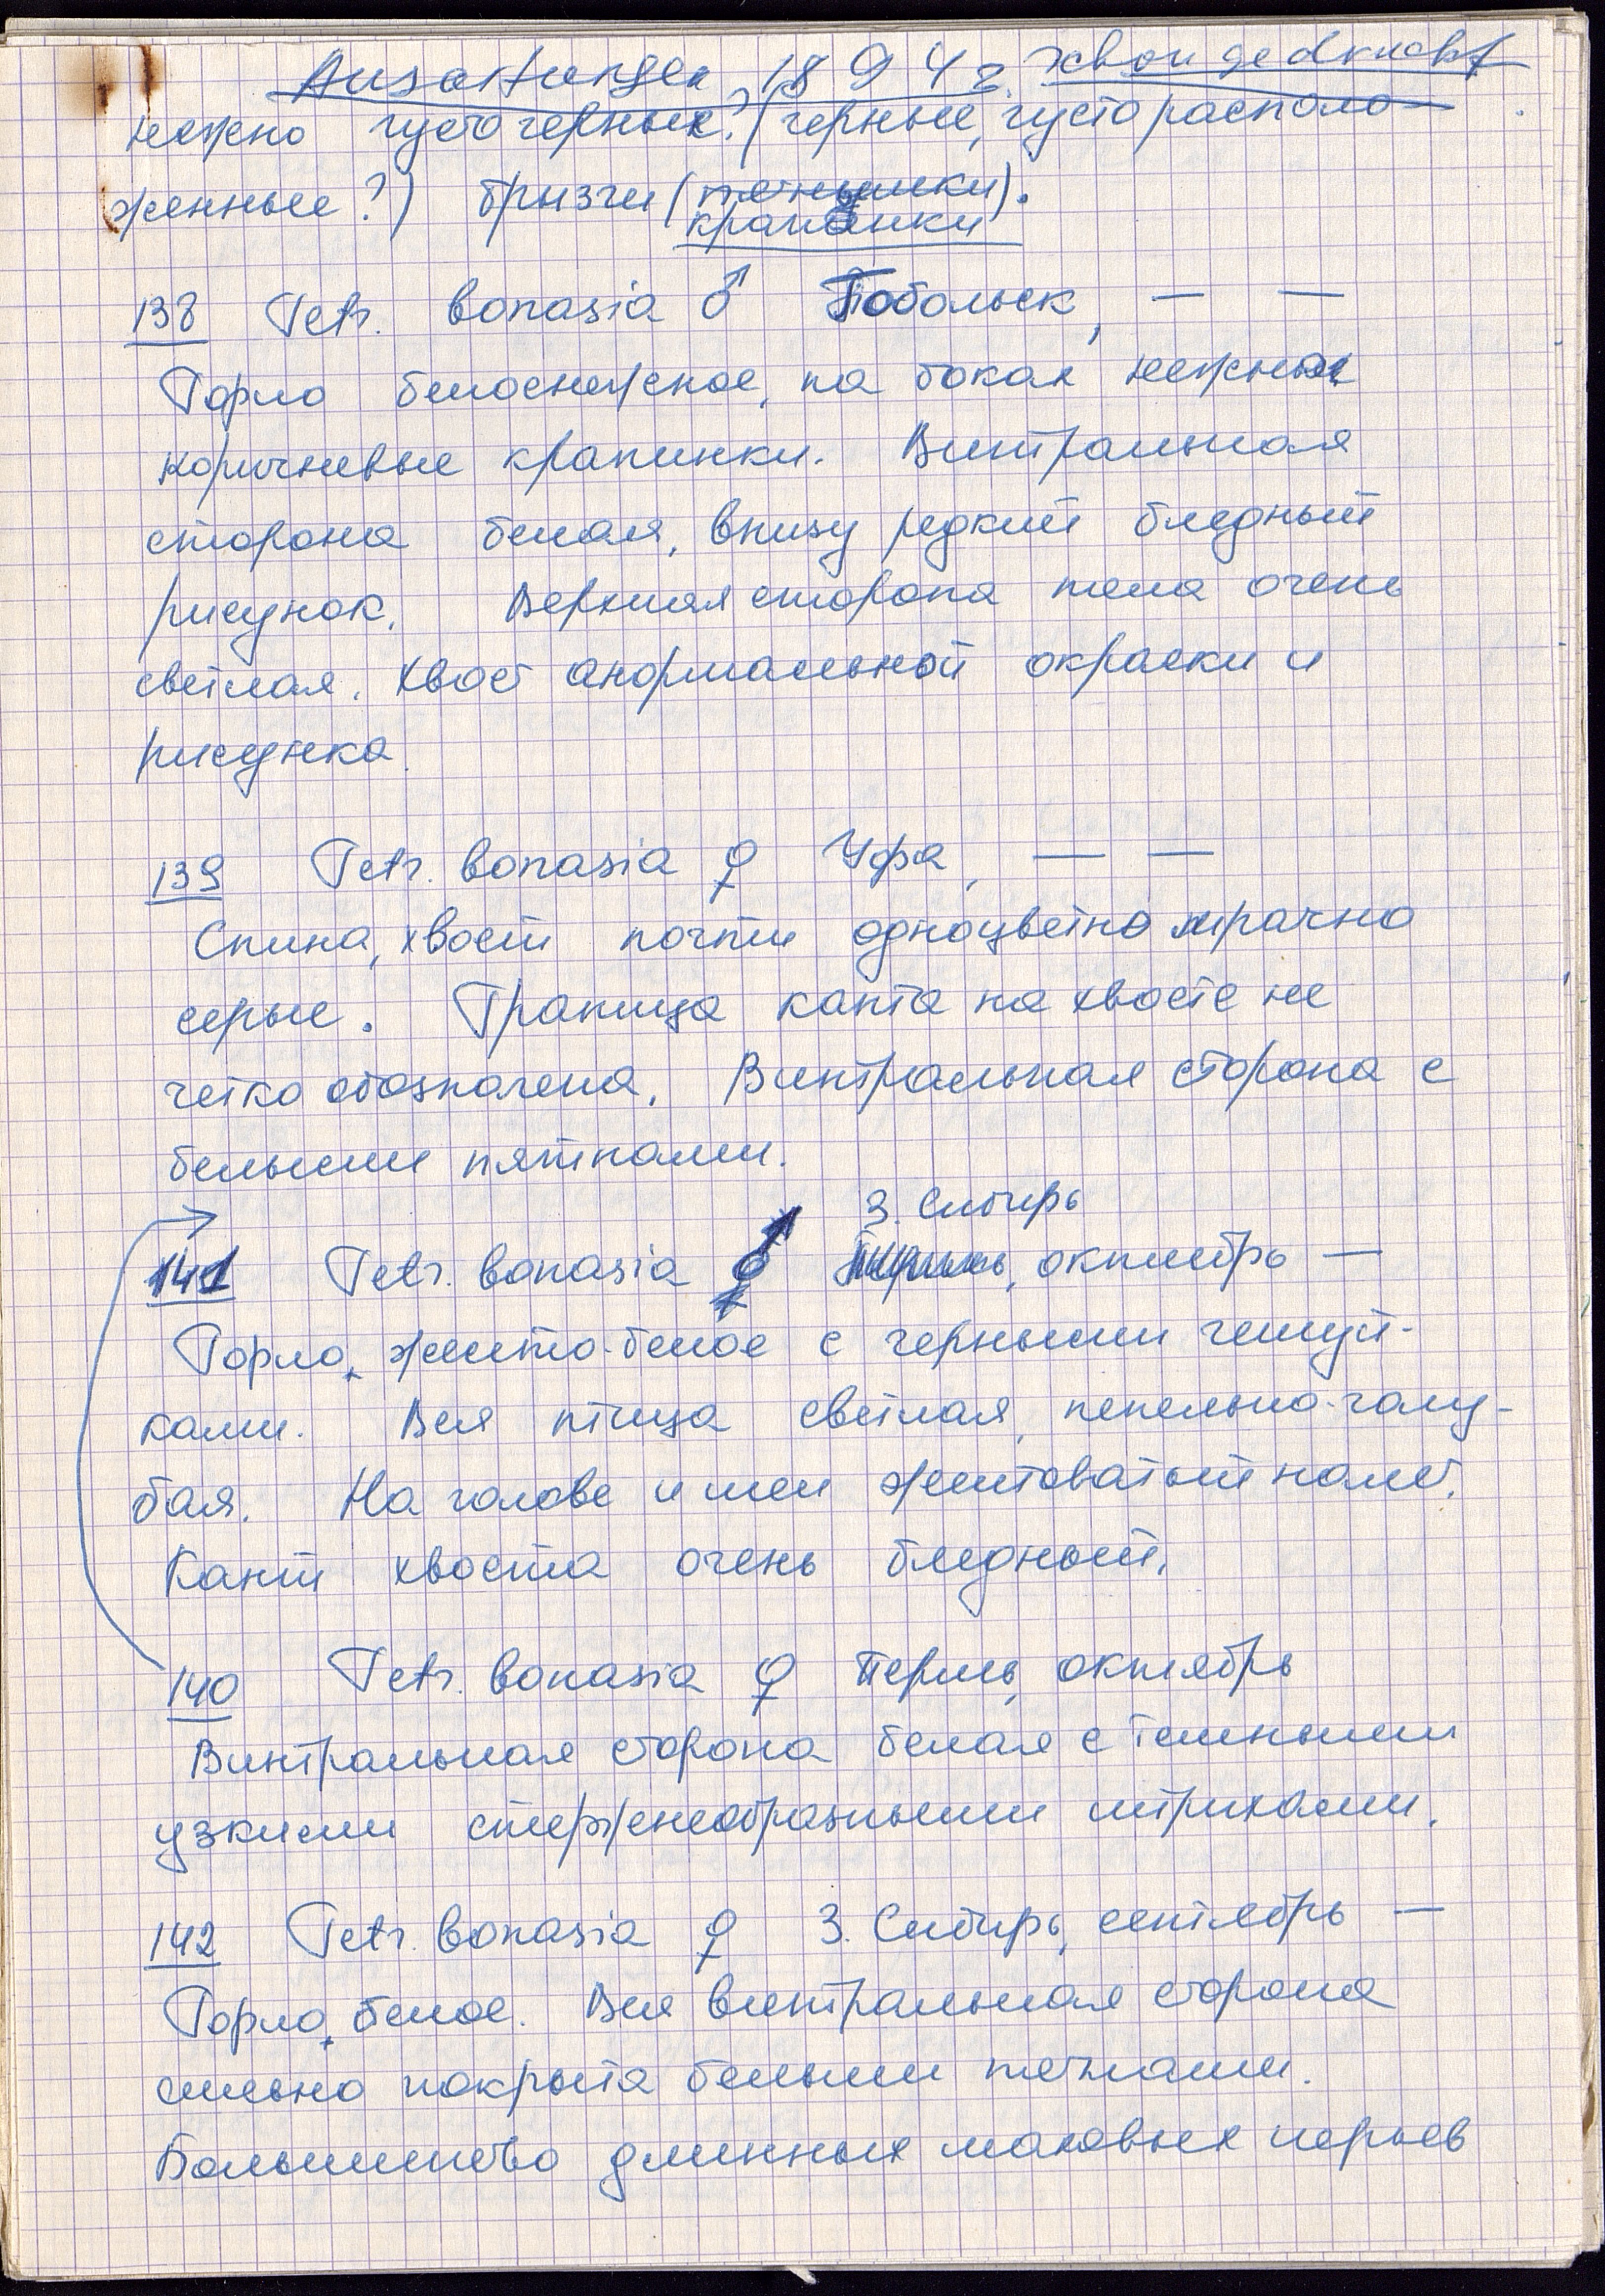 Ausartungen, 1894 г.
нежно густочерных? (черные, густо располо-
женные?) брызги (пятнышки).
крапинки
138 Tetr. bonasia ♂ Тобольск, — —
Горло белоснежное, на боках нежные
коричневые крапинки. Винтральная
сторона белая, внизу редкий бледный
рисунок. Верхняя сторона тела очень
светлая. Хвост анормальной окраски и
рисунка.
139 Tetr. bonasia ♀ Уфа, — —
Спина, хвост почти одноцветно мрачно
серые. Граница канта на хвосте не
четко обозначена. Винтральная сторона с
белыми пятнами.
З. Сибирь
141 Tetr. bonasia ♂ октябрь —
Горло, желто-белое с черными чешуй-
ками. Вся птица светлая, пепельно-голу-
бая. На голове и шеи желтоватый налет.
Кант хвоста очень бледный.
140 Tetr. bonasia ♀ Пермь, октябрь
Винтральная сторона белая с темными
узкими стержнеобразными штрихами.
142 Tetr. bonasia ♀ З. Сибирь, сентябрь —
Горло, белое. Вся винтральная сторона
сильно покрыта белыми пятнами.
Большинство длинных маховых перьев